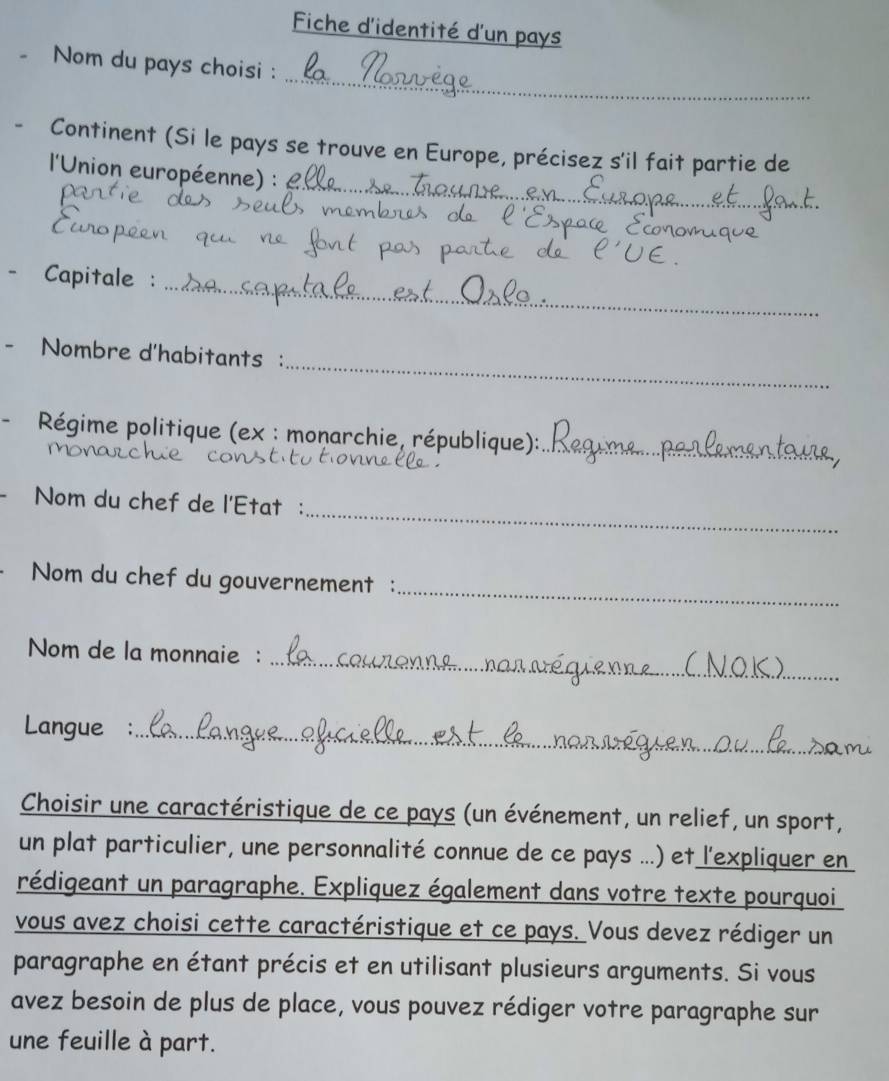 Fiche d'identité d'un pays
- Nom du pays choisi : la Norvège
- Continent (Si le pays se trouve en Europe, précisez s'il fait partie de
l'Union européenne) : elle se trouve en Europe et fait
partie des seuls membres de l'Espace Économique
Européen qui ne font pas partie de l'UE.
- Capitale : sa capitale est Oslo.
- Nombre d'habitants :
- Régime politique (ex : monarchie, république): Regime parlementaire,
monarchie constitutionnelle.
- Nom du chef de l'Etat :
- Nom du chef du gouvernement :
Nom de la monnaie : la couronne norvégienne (NOK)
Langue : la langue oficielle est le norvégien ou le sami
Choisir une caractéristique de ce pays (un événement, un relief, un sport,
un plat particulier, une personnalité connue de ce pays ...) et l'expliquer en
rédigeant un paragraphe. Expliquez également dans votre texte pourquoi
vous avez choisi cette caractéristique et ce pays. Vous devez rédiger un
paragraphe en étant précis et en utilisant plusieurs arguments. Si vous
avez besoin de plus de place, vous pouvez rédiger votre paragraphe sur
une feuille à part.